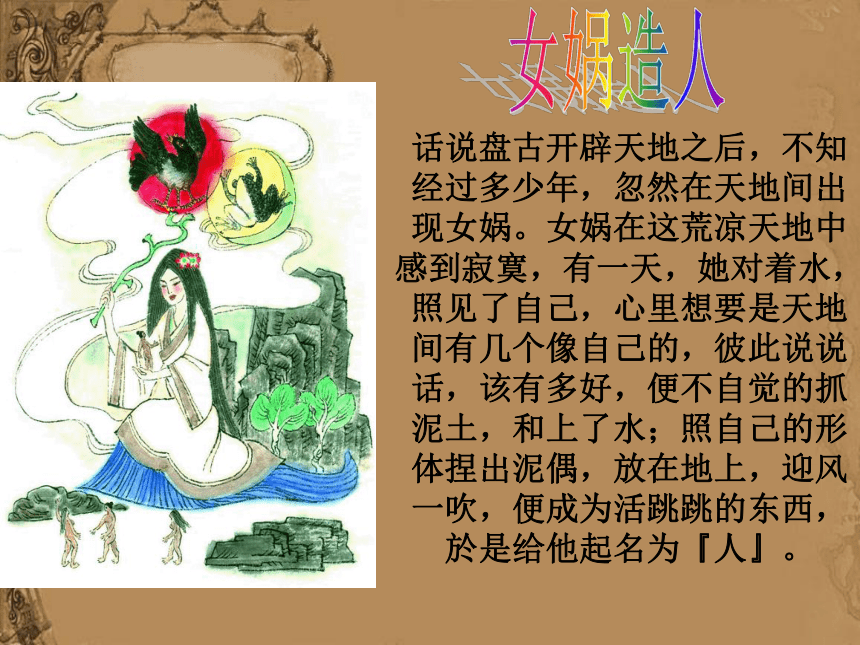 女娲造人
话说盘古开辟天地之后，不知
经过多少年，忽然在天地间出
现女娲。女娲在这荒凉天地中
感到寂寞，有一天，她对着水，
照见了自己，心里想要是天地
间有几个像自己的，彼此说说
话，该有多好，便不自觉的抓
泥土，和上了水；照自己的形
体捏出泥偶，放在地上，迎风
一吹，便成为活跳跳的东西，
於是给他起名为『人』。